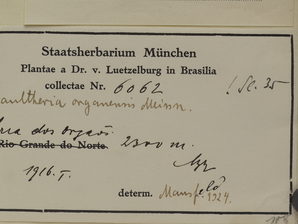 Staatsherbarium München
Plantae a Dr. v. Luetzelburg in Brasilia
collectae Nr. 6062
aultheria organensis Meissn.
dos orgãos 2300 m.
Rio Grande do Norte.
1916. I.
determ. Mansfeld 1924.